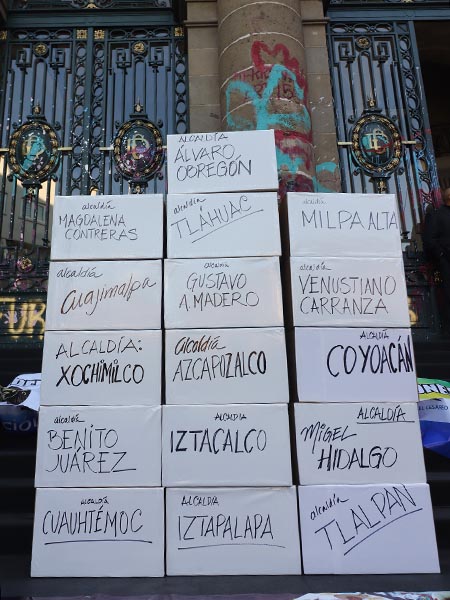 ALCALDÍA
ÁLVARO
OBREGÓN
alcaldía
MAGDALENA
CONTRERAS
alcaldía
TLÁHUAC
alcaldía
MILPA ALTA
alcaldía
Cuajimalpa
alcaldía
GUSTAVO
A. MADERO
alcaldía
VENUSTIANO
CARRANZA
ALCALDÍA:
XOCHIMILCO
alcaldía
AZCAPOZALCO
ALCALDÍA
COYOACÁN
alcaldía
BENITO
JUÁREZ
ALCALDÍA
IZTACALCO
ALCALDÍA
MIGEL
HIDALGO
alcaldía
CUAUHTÉMOC
ALCALDÍA
IZTAPALAPA
alcaldía
TLALPAN